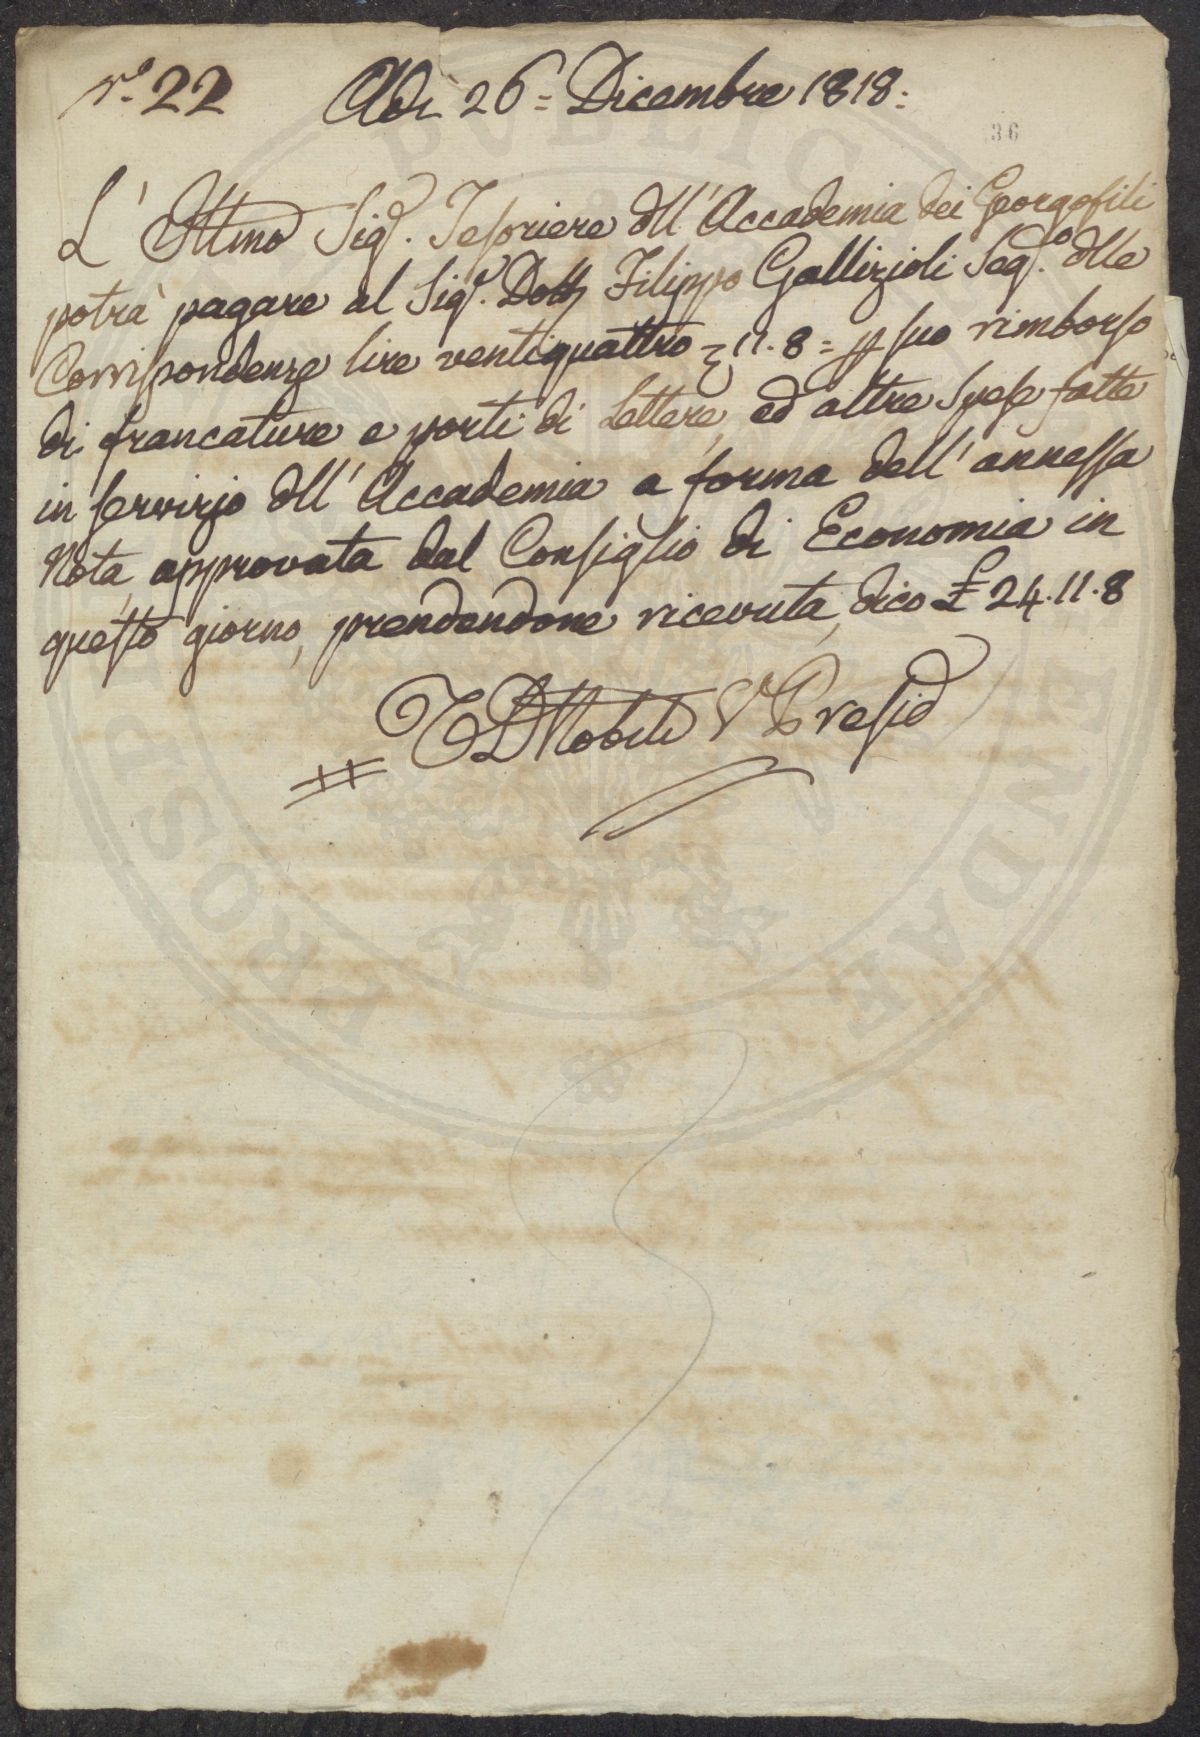 N.º 22 Adì 26 = Dicembre 1818 :
36
L' Ill.mo Sig.r Tesoriere dll' Accademia dei Georgofili
potrà pagare al Sig.r Dott Filippo Gallizioli Seg.o dlle
Corrispondenze lire ventiquattro 11.8 = p suo rimborso
di francature e porti di Lettere, ed altre Spese fatte
in servizio dll' Accademia a forma dell' annessa
Nota, approvata dal Consiglio di Economia in
questo giorno, prendendone ricevuta, dico £ 24.11.8
Nobili V Presid
PVBLICAE
PROSPERITATI AVGENDAE